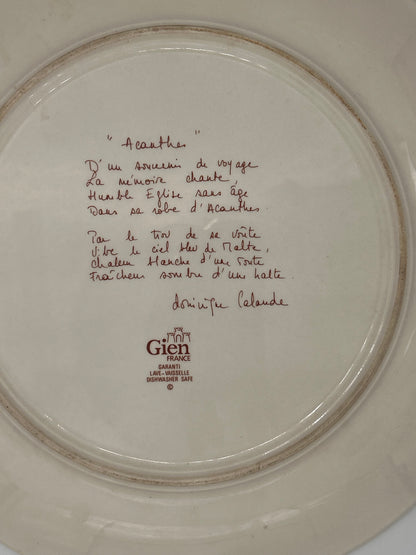 "Acanthes"
D'un souvenir de voyage
La mémoire chante,
Humble Eglise sans âge
Dans sa robe d'Acanthes.
Par le trou de sa voûte
Vibre le ciel bleu de Malte,
Chaleur blanche d'une route
Fraîcheur sombre d'une halte.
dominique Lalande
Gien
FRANCE
GARANTI
LAVE-VAISSELLE
DISHWASHER SAFE
©